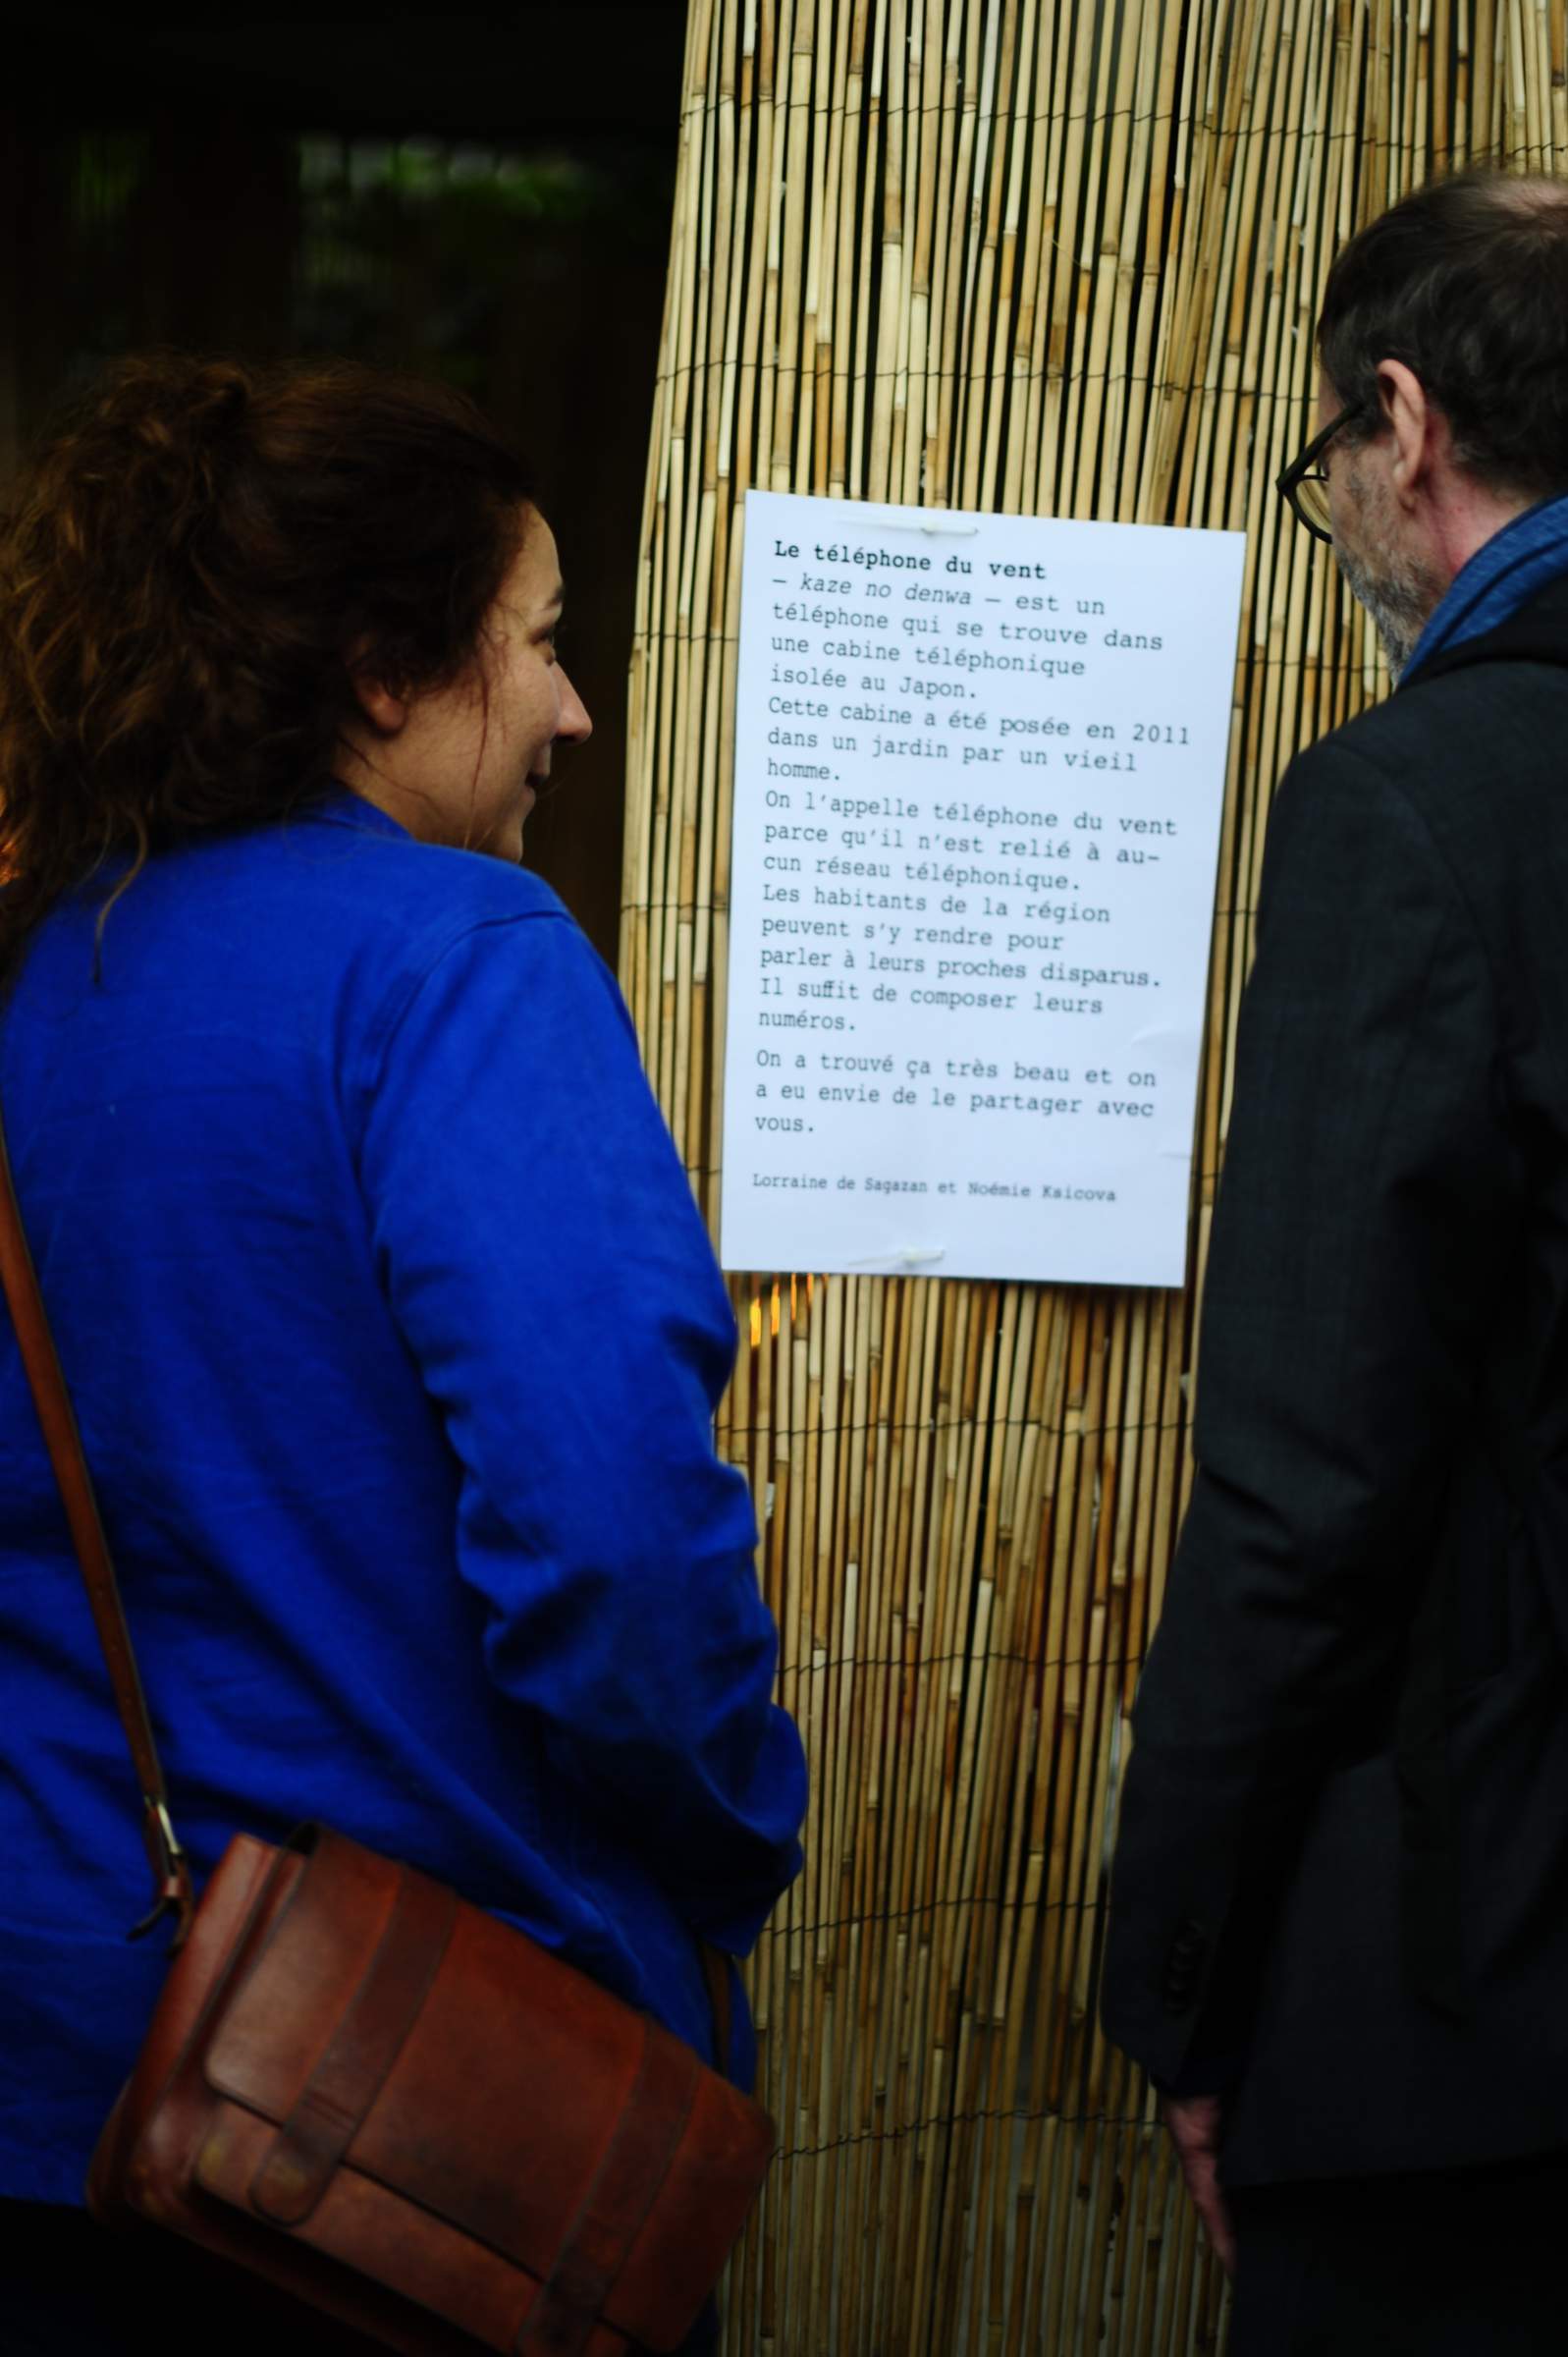 Le téléphone du vent
— kaze no denwa — est un
téléphone qui se trouve dans
une cabine téléphonique
isolée au Japon.
Cette cabine a été posée en 2011
dans un jardin par un vieil
homme.
On l'appelle téléphone du vent
parce qu'il n'est relié à au-
cun réseau téléphonique.
Les habitants de la région
peuvent s'y rendre pour
parler à leurs proches disparus.
Il suffit de composer leurs
numéros.
On a trouvé ça très beau et on
a eu envie de le partager avec
vous.
Lorraine de Sagazan et Noémie Ksicova